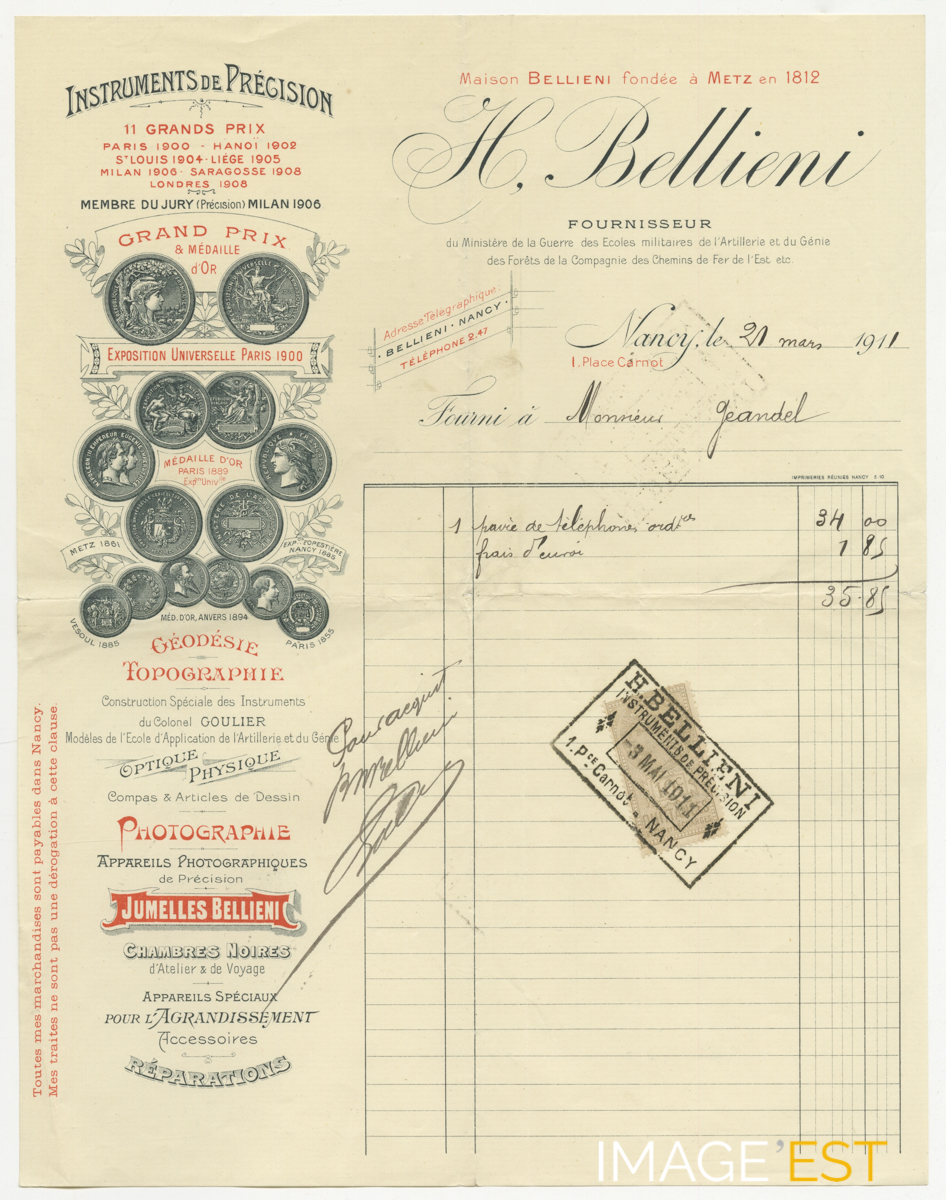 INSTRUMENTS DE PRÉCISION
11 GRANDS PRIX
PARIS 1900 - HANOÏ 1902
ST LOUIS 1904 - LIÈGE 1905
MILAN 1906 - SARAGOSSE 1908
LONDRES 1908
MEMBRE DU JURY (Précision) MILAN 1906
GRAND PRIX
& MÉDAILLE
d'OR
EXPOSITION UNIVERSELLE PARIS 1900
MÉDAILLE D'OR
PARIS 1889
Expon Univlle
METZ 1861
EXPon FORESTIÈRE
NANCY 1885
MÉD. D'OR, ANVERS 1894
VESOUL 1885
PARIS 1855
GÉODÉSIE
TOPOGRAPHIE
Construction Spéciale des Instruments
du Colonel GOULIER
Modèles de l'Ecole d'Application de l'Artillerie et du Génie
OPTIQUE PHYSIQUE
Compas & Articles de Dessin
PHOTOGRAPHIE
APPAREILS PHOTOGRAPHIQUES
de Précision
JUMELLES BELLIENI
CHAMBRES NOIRES
d'Atelier & de Voyage
APPAREILS SPÉCIAUX
POUR L'AGRANDISSEMENT
Accessoires
RÉPARATIONS
Toutes mes marchandises sont payables dans Nancy.
Mes traites ne sont pas une dérogation à cette clause.
Maison BELLIENI fondée à METZ en 1812
H. Bellieni
FOURNISSEUR
du Ministère de la Guerre des Ecoles militaires de l'Artillerie et du Génie
des Forêts de la Compagnie des Chemins de Fer de l'Est etc.
Adresse Télégraphique.
BELLIENI - NANCY
TÉLÉPHONE 2.47
Nancy, le 21 mars 1911
1. Place Carnot
Fourni à Monsieur Geandel
IMPRIMERIES RÉUNIES NANCY 5 10
1 paire de téléphones ordres 34 00
frais d'envoi 1 85
35.85
Pour acquit
Bellieni
H. BELLIENI
INSTRUMENTS DE PRÉCISION
-3 MAI 1911
1. Pce Carnot - NANCY
IMAGE EST